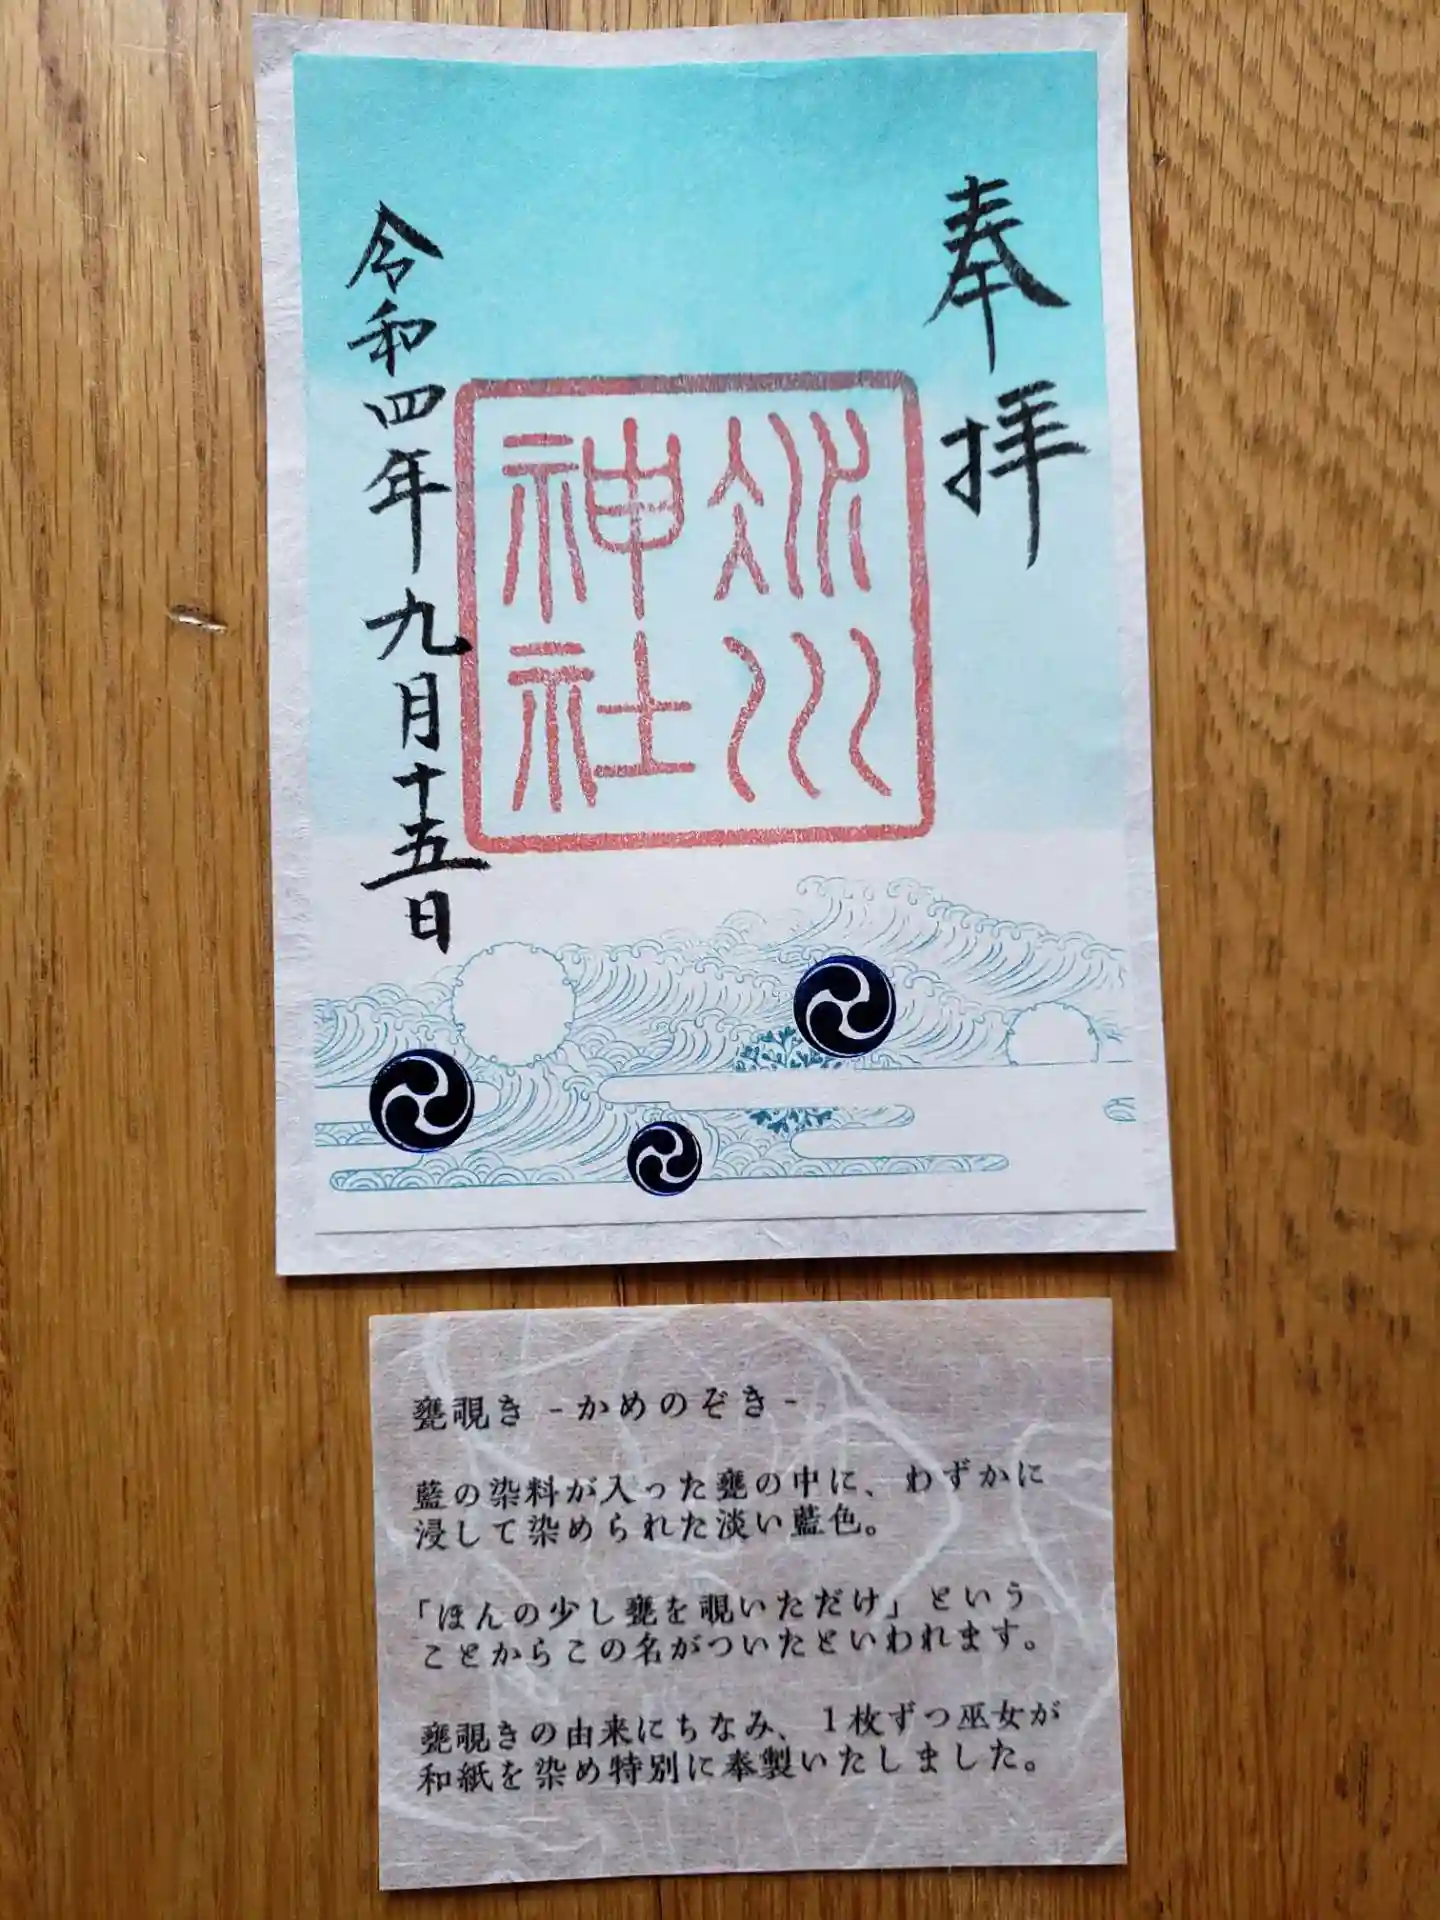 奉拝
氷川神社
令和四年九月十五日
甕覗き -かめのぞき-
藍の染料が入った甕の中に、わずかに
浸して染められた淡い藍色。
「ほんの少し甕を覗いただけ」という
ことからこの名がついたといわれます。
甕覗きの由来にちなみ、1枚ずつ巫女が
和紙を染め特別に奉製いたしました。